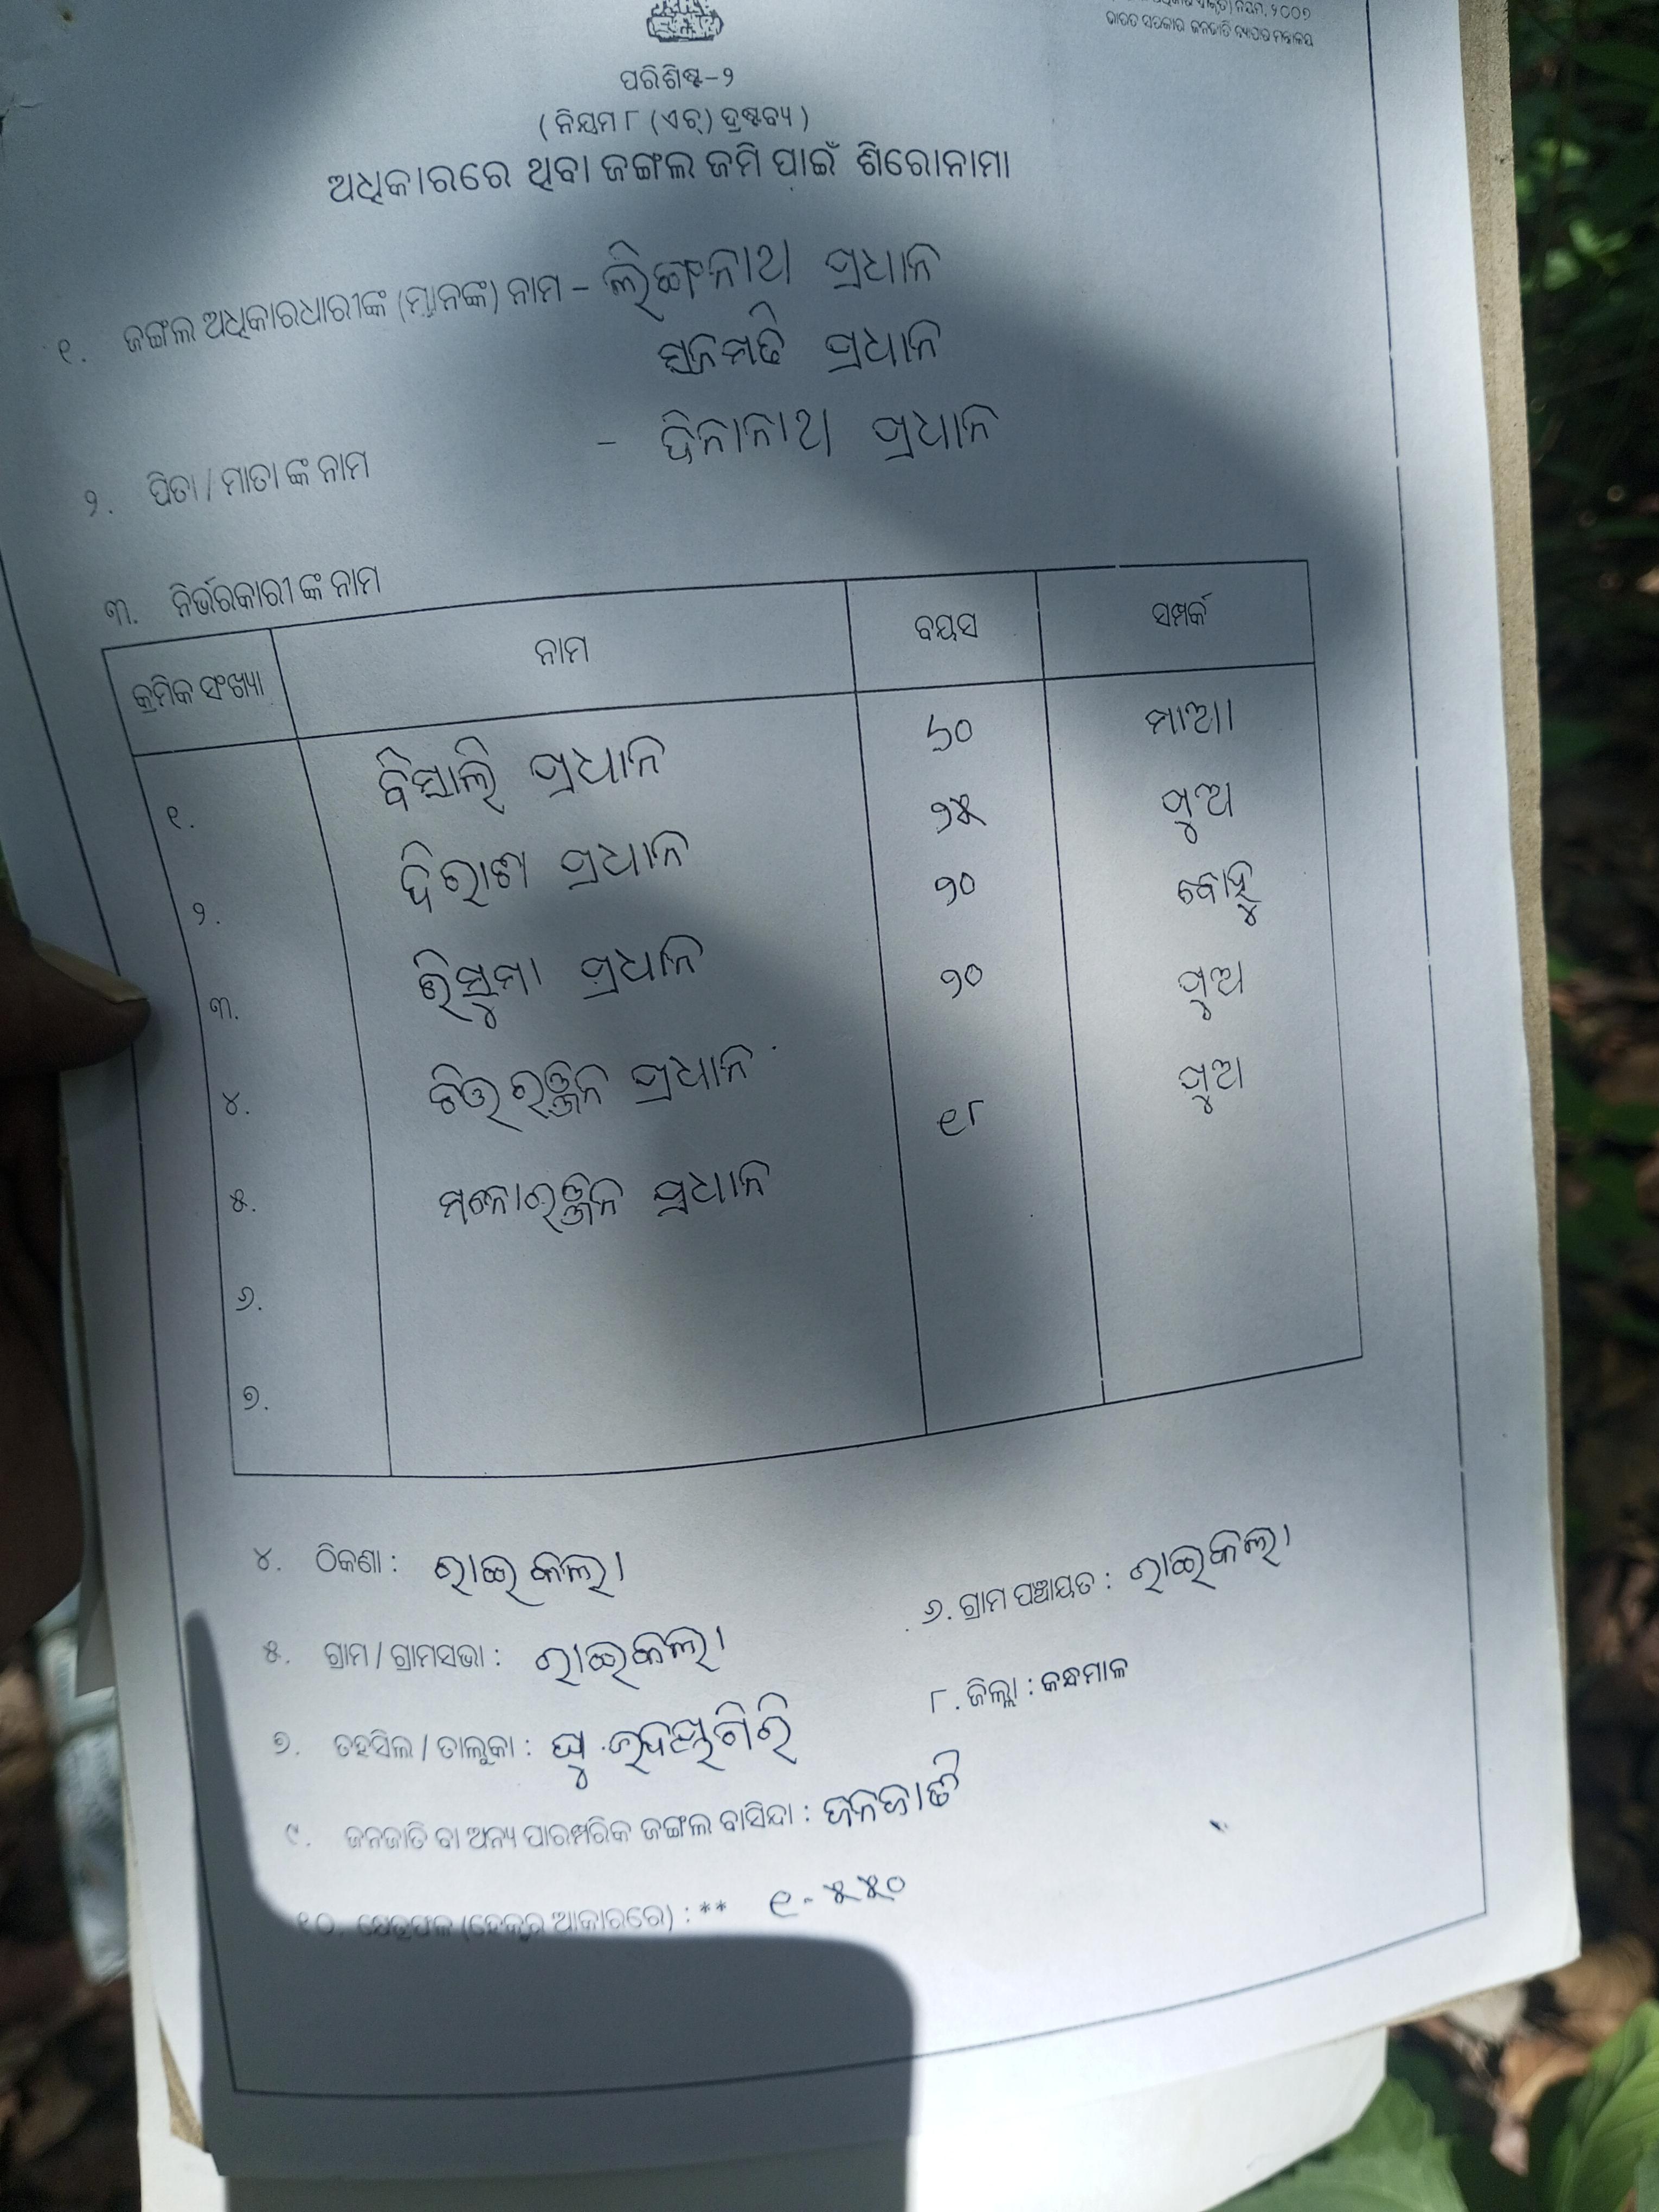 ନିୟମ, ୨୦୦୭
ଭାରତ ସରକାର ଜନଜାତି ବ୍ୟାପାର ମନ୍ତ୍ରାଳୟ
ପରିଶିଷ୍ଟ-୨
( ନିୟମ ୮ (ଏଚ୍) ଦ୍ରଷ୍ଟବ୍ୟ )
ଅଧିକାରରେ ଥିବା ଜଙ୍ଗଲ ଜମି ପାଇଁ ଶିରୋନାମା
୧. ଜଙ୍ଗଲ ଅଧିକାରଧାରୀଙ୍କ (ମାନଙ୍କ) ନାମ - ଲିଙ୍ଗନାଥ ପ୍ରଧାନ
ପ୍ରଧାନ
୨. ପିତା / ମାତା ଙ୍କ ନାମ - ଦିନାନାଥ ପ୍ରଧାନ
୩. ନିର୍ଭରକାରୀ ଙ୍କ ନାମ
କ୍ରମିକ ସଂଖ୍ୟା ନାମ ବୟସ ସମ୍ପର୍କ
୧. ପ୍ରଧାନ ୬୦ ମାଆ
୨. ପ୍ରଧାନ ୨୫ ପୁଅ
୩. ପ୍ରଧାନ ୨୦ ବୋହୂ
୪. ଚିତ୍ତରଞ୍ଜନ ପ୍ରଧାନ ୨୦ ପୁଅ
୫. ମନୋରଞ୍ଜନ ପ୍ରଧାନ ୧୮ ପୁଅ
୬.
୭.
୪. ଠିକଣା : ରାଇକଲା
୫. ଗ୍ରାମ / ଗ୍ରାମସଭା : ରାଇକଲା
୬. ଗ୍ରାମ ପଞ୍ଚାୟତ : ରାଇକଲା
୭. ତହସିଲ / ତାଲୁକା : ଘୁ.ଉଦୟଗିରି
୮. ଜିଲ୍ଲା : କନ୍ଧମାଳ
୯. ଜନଜାତି ବା ଅନ୍ୟ ପାରମ୍ପରିକ ଜଙ୍ଗଲ ବାସିନ୍ଦା : ଜନଜାତି
୧୦. କ୍ଷେତ୍ରଫଳ (ହେକ୍ଟର ଆକାରରେ) : ** ୧-୫୫୦